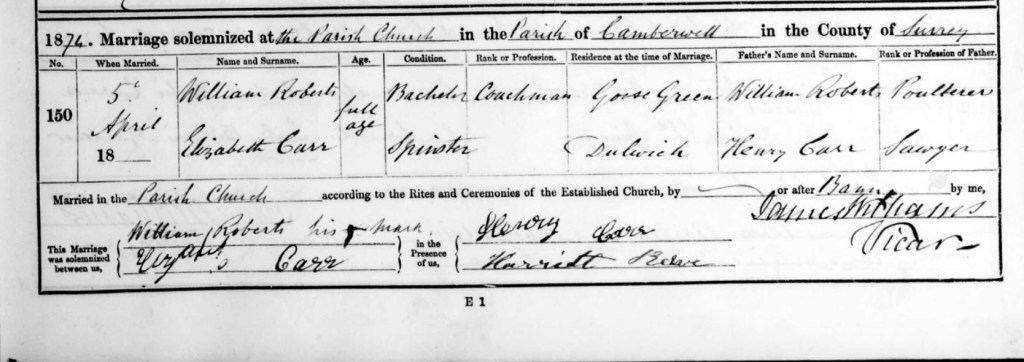 1874. Marriage solemnized at the Parish Church in the Parish of Camberwell in the County of Surrey
No. When Married. Name and Surname. Age. Condition. Rank or Profession. Residence at the time of Marriage. Father's Name and Surname. Rank or Profession of Father.
150 5 April 18 William Roberts full age Bachelor Coachman Goose Green William Roberts Poulterer
Elizabeth Carr Spinster Dulwich Henry Carr Sawyer
Married in the Parish Church according to the Rites and Ceremonies of the Established Church, by or after Banns by me,
James Williams
Vicar
This Marriage was solemnized between us, William Roberts his mark in the Presence of us, Henry Carr
Carr Harriett
E 1